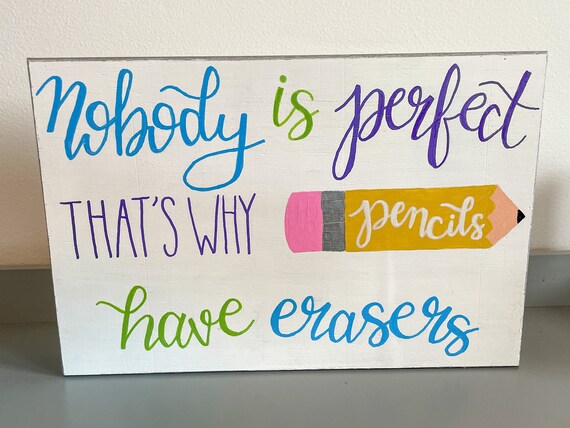 Nobody is perfect
THAT'S WHY pencils
have erasers